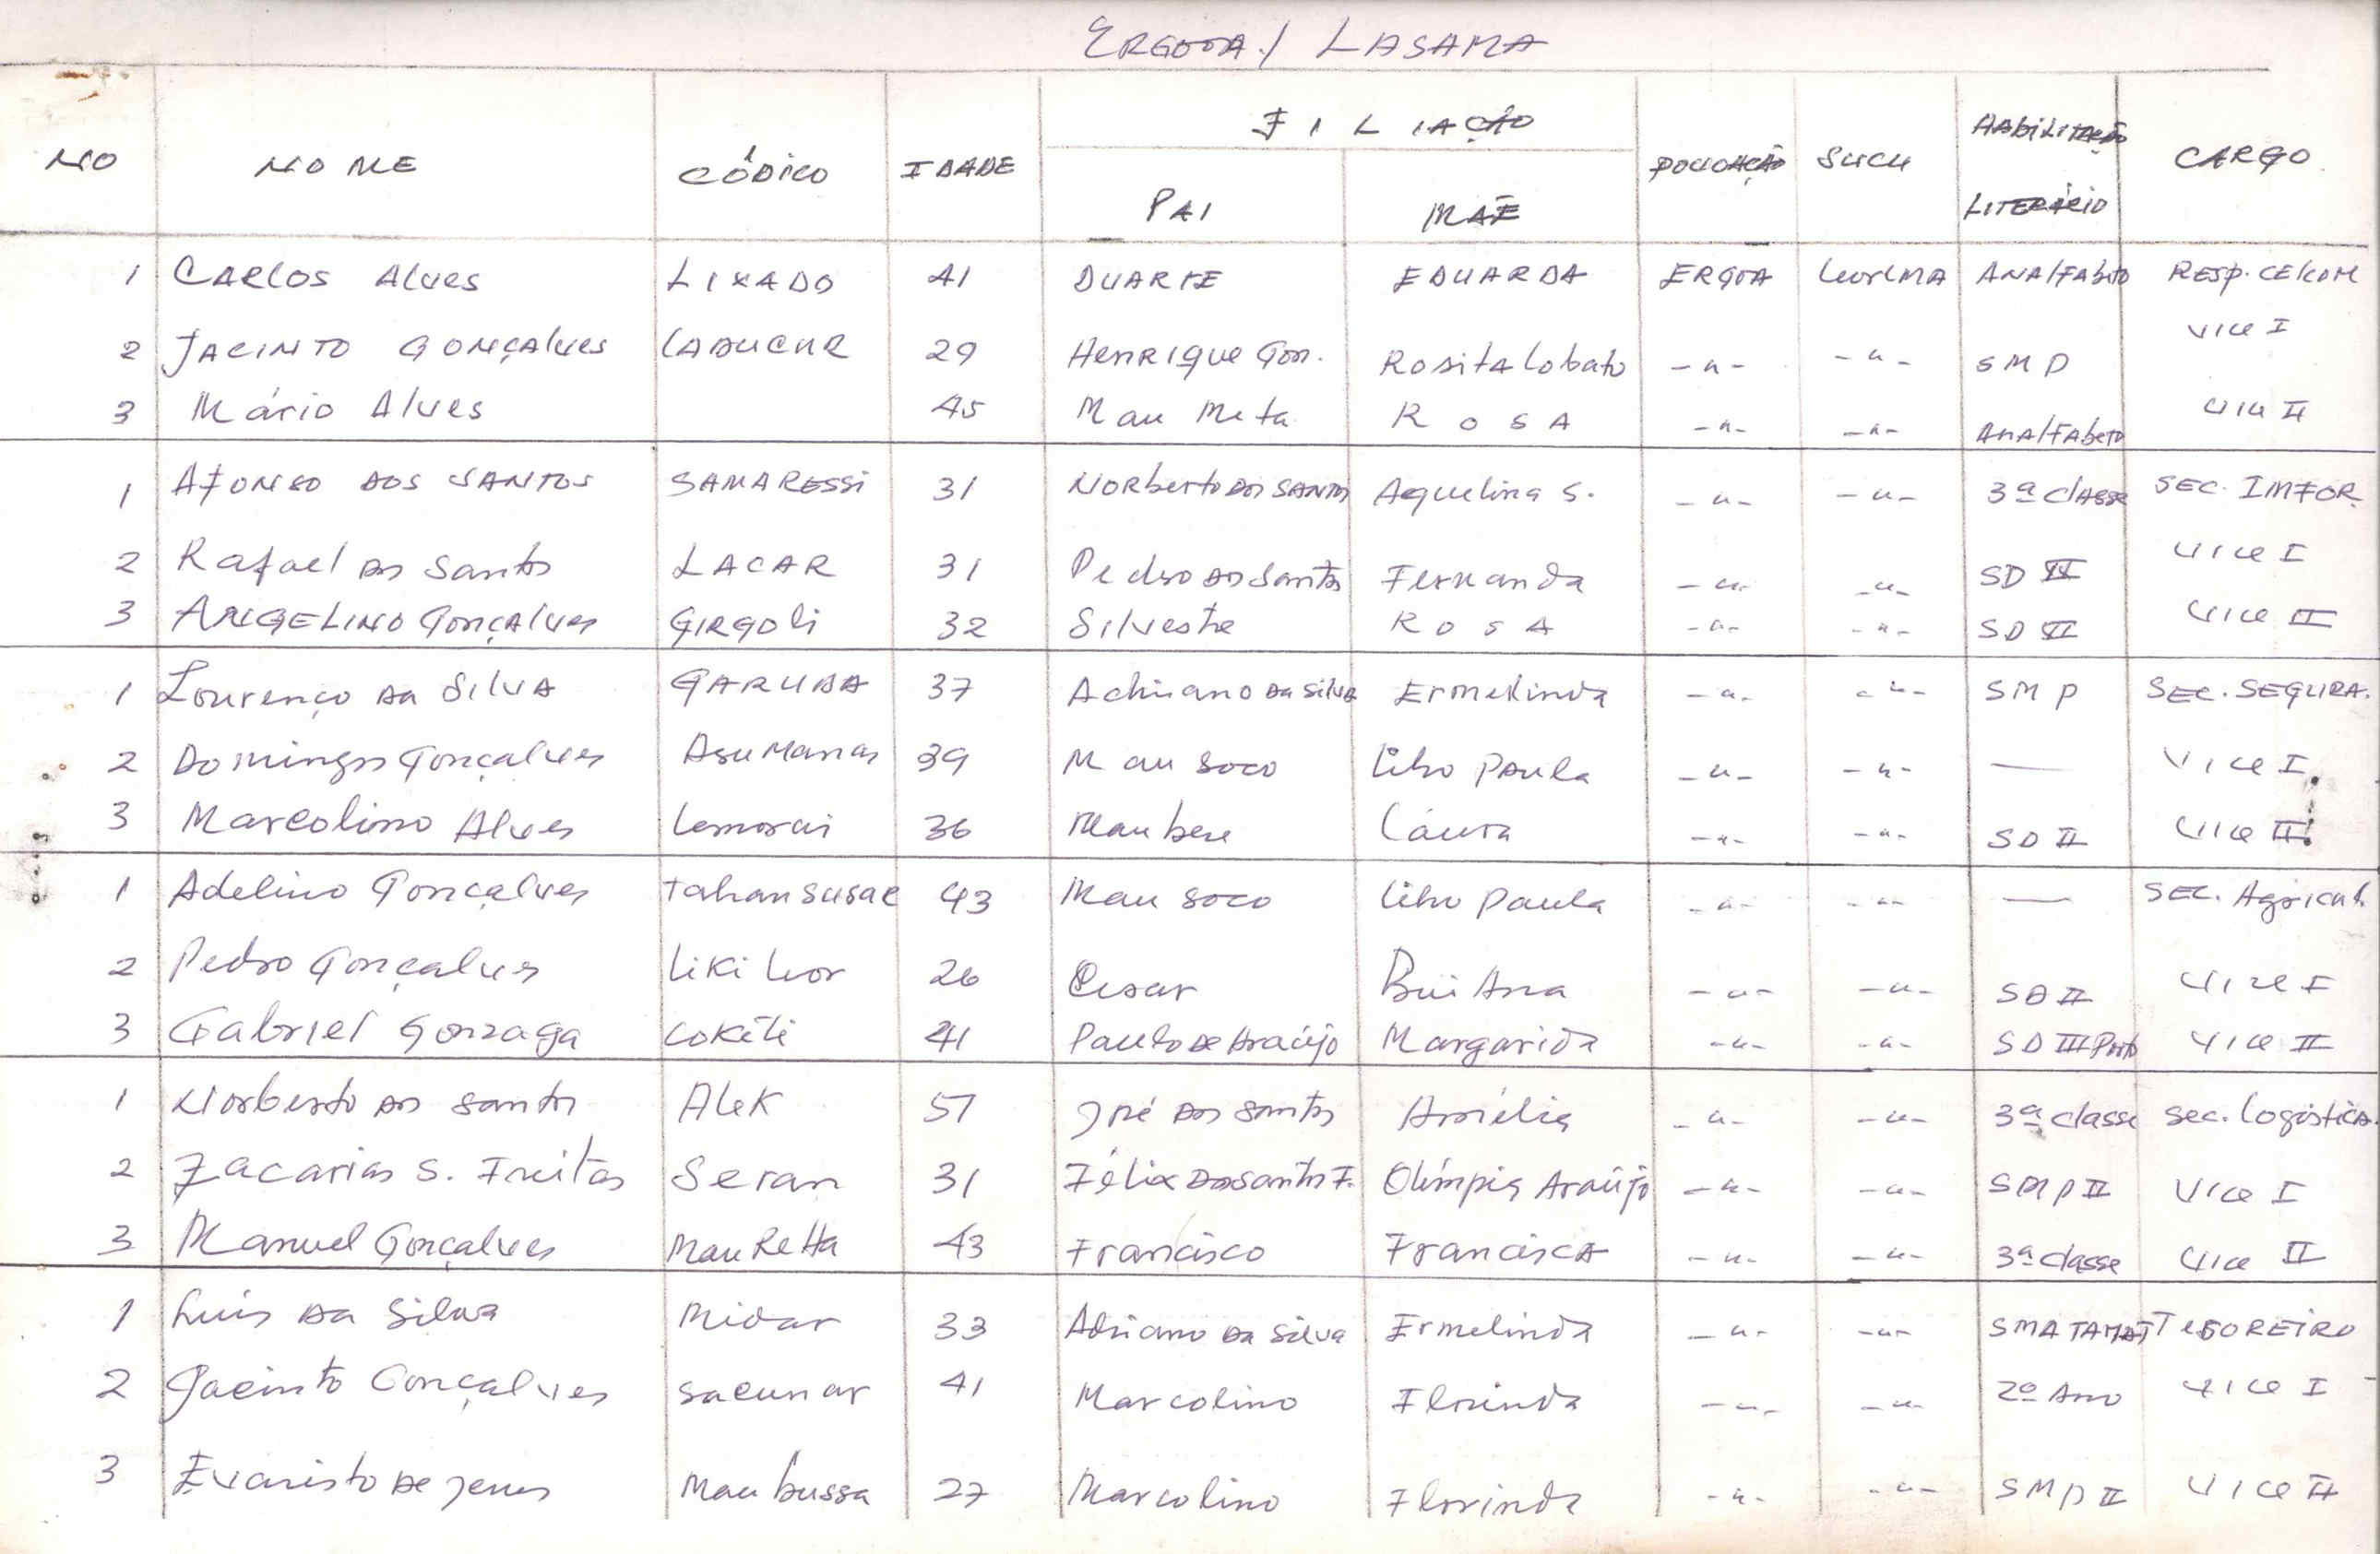 ERGOA / LASAMA
NO NOME CÓDICO IDADE FILIAÇÃO POVOAÇÃO SUCU HABILITAÇÃO LITERÁRIO CARGO
PAI MÃE
1 CARLOS Alves LIXADO 41 DUARTE EDUARDA ERGOA ANAlFAbeto RESP. CELCOM
2 JACINTO GONÇAlves LADUCUR 29 HenRIque Gon. RositA Lobato -"- -"- SMP VICE I
3 Mário Alves 45 Mau Meta ROSA -"- -"- AnAlFAbeto VICE II
1 AFONSO DOS SANTOS SAMARESSi 31 NORberto DOS SANTOS Aquelina S. -"- -"- 3ª clAsse SEC. INFOR.
2 Rafael dos Santos LACAR 31 Pedro dos Santos Fernanda -"- -"- SD VICE I
3 ANGELINO GonçAlves GIRGOli 32 Silvestre ROSA -"- -"- SD VICE II
1 Lourenço da SilvA GARUDA 37 Adriano da Silva Ermelinda -"- -"- SMP SEC. SEGURA.
2 Domingos Gonçalves Asu Manas 39 Mau Soco Liho PAula -"- -"- — VICE I
3 Marcolino Alves Lemorai 36 Maubere Láura -"- -"- SD II VICE II
1 Adelino Gonçalves tahan susar 43 Mau Soco Liho Paula -"- -"- — SEC. Agricul.
2 Pedro Gonçalves Liki Leor 26 Cesar Bui Ana -"- -"- SD II VICE I
3 Gabriel Gonzaga Cokéli 41 Paulo de Araújo Margarida -"- -"- SD III VICE II
1 Norberto dos Santos Alek 57 José dos Santos Amélia -"- -"- 3ª classe Sec. Logistica.
2 Zacarias S. Freitas Seran 31 Félix dos Santos F. Olímpia Araújo -"- -"- SMP II Vice I
3 Manuel Gonçalves Mau Retta 43 Francisco FranciscA -"- -"- 3ª classe Vice II
1 Luis da Silva Midar 33 Adriano da Silva Ermelinda -"- -"- SMA TAMAT TESOREIRO
2 Jacinto Gonçalves Sacunar 41 Marcolino Florinda -"- -"- 2º Ano VICE I
3 Evaristo de Jesus Mau bussa 27 Marcolino Florinda -"- -"- SMP II VICE II